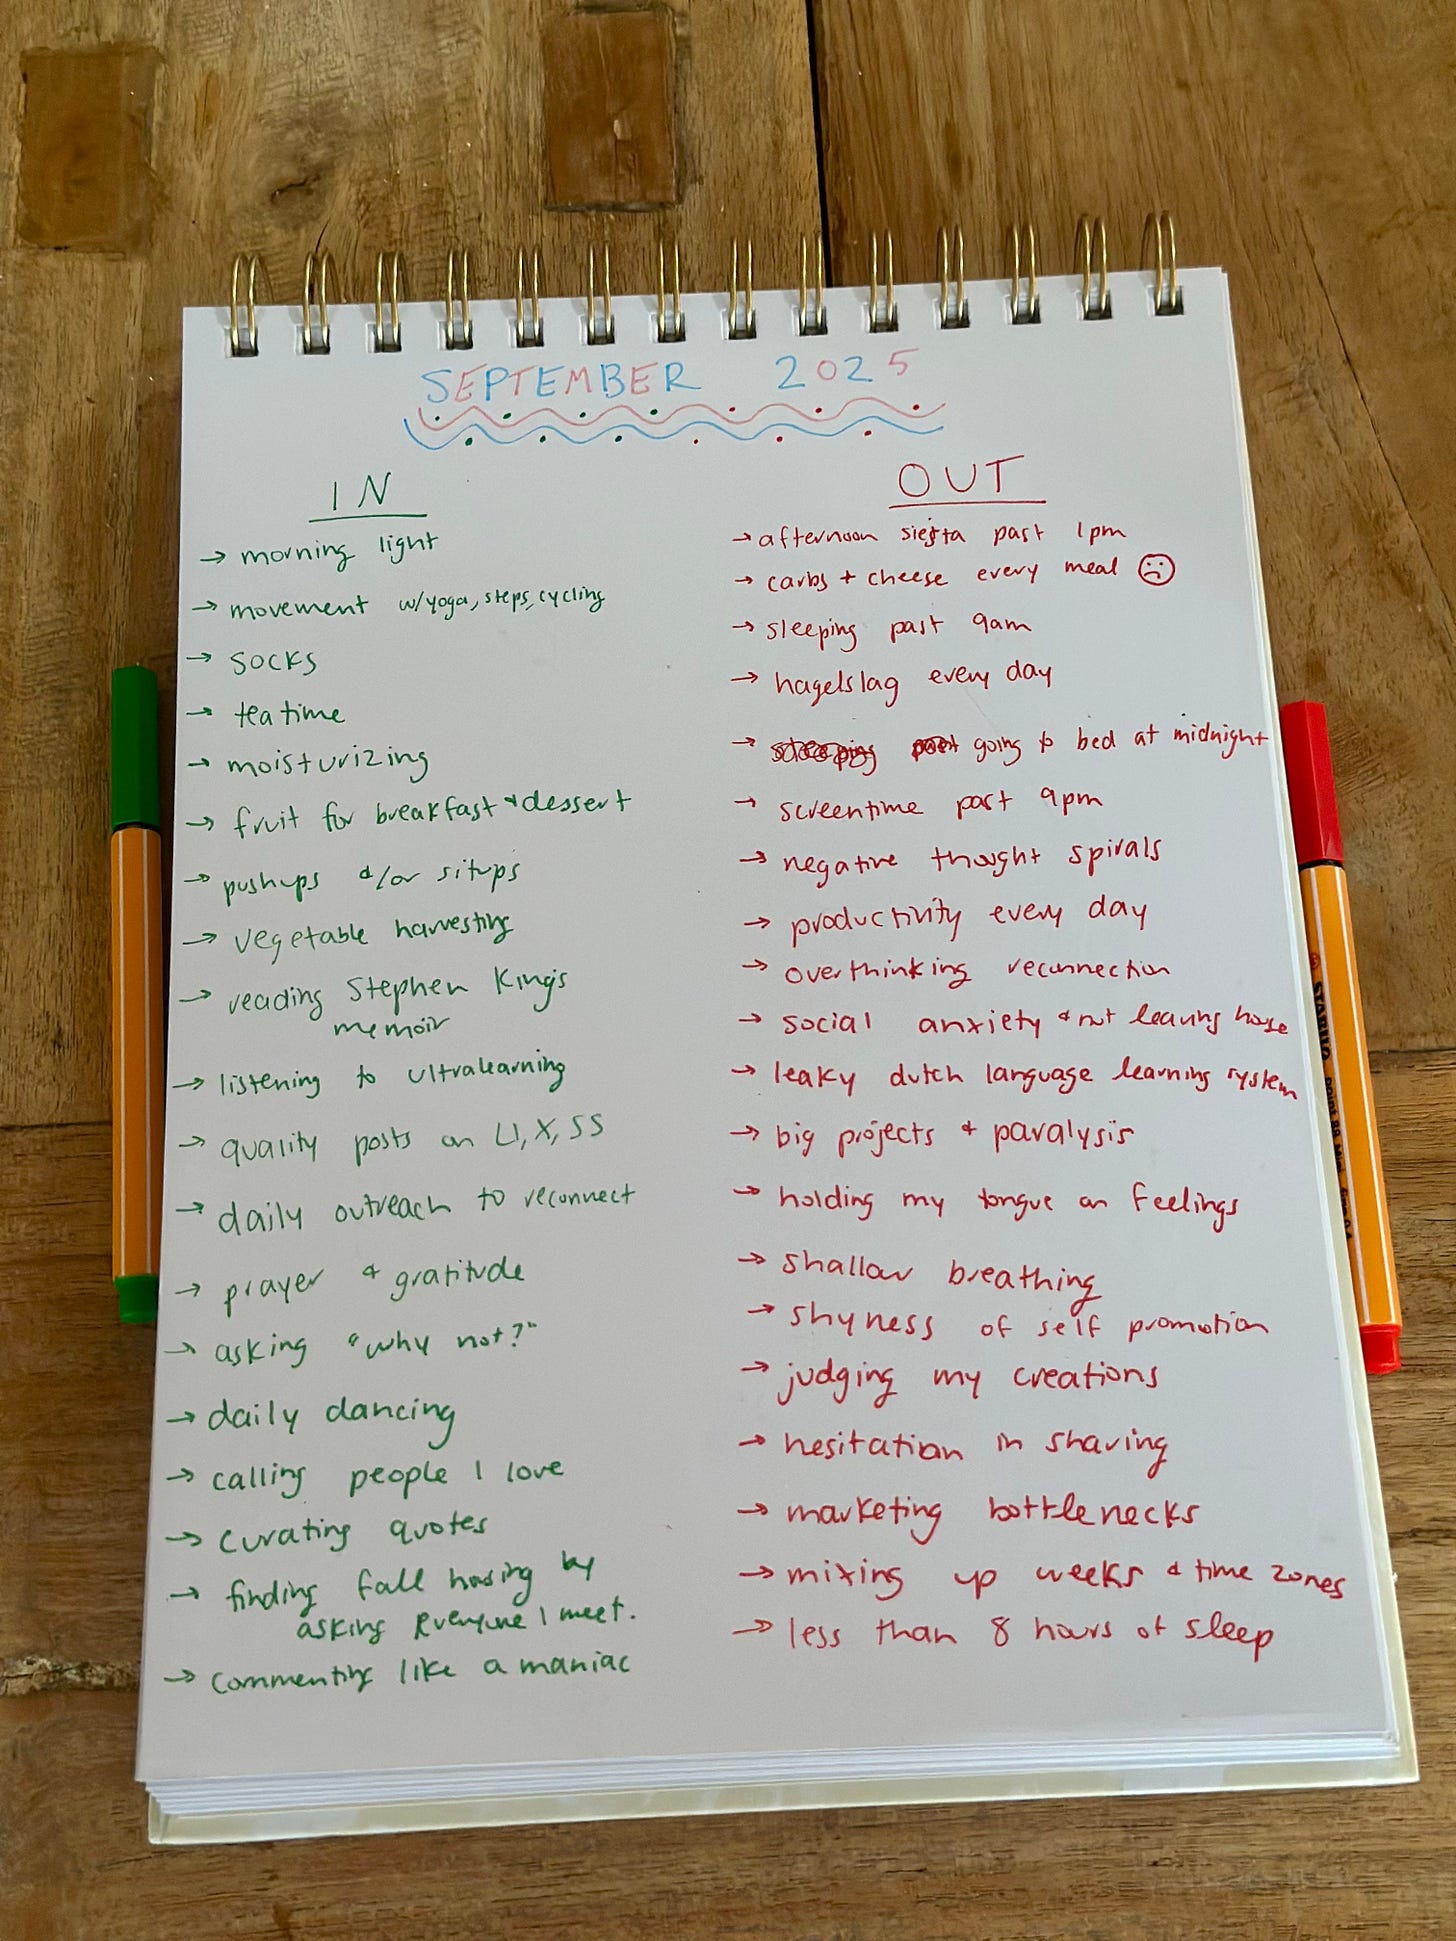 SEPTEMBER 2025
IN
→ morning light
→ movement w/yoga, steps, cycling
→ socks
→ tea time
→ moisturizing
→ fruit for breakfast + dessert
→ pushups &/or situps
→ vegetable harvesting
→ reading Stephen King's
memoir
→ listening to ultralearning
→ quality posts on LI, X, SS
→ daily outreach to reconnect
→ prayer & gratitude
→ asking "why not?"
→ daily dancing
→ calling people I love
→ curating quotes
→ finding fall housing by
asking everyone I meet.
→ commenting like a maniac
OUT
→ afternoon siesta past 1pm
→ carbs + cheese every meal
→ sleeping past 9am
→ hagelslag every day
→ going to bed at midnight
→ screentime past 9pm
→ negative thought spirals
→ productivity every day
→ overthinking reconnection
→ social anxiety & not leaving house
→ leaky dutch language learning system
→ big projects & paralysis
→ holding my tongue on feelings
→ shallow breathing
→ shyness of self promotion
→ judging my creations
→ hesitation in sharing
→ marketing bottlenecks
→ mixing up weeks & time zones
→ less than 8 hours of sleep
STABILO point 88